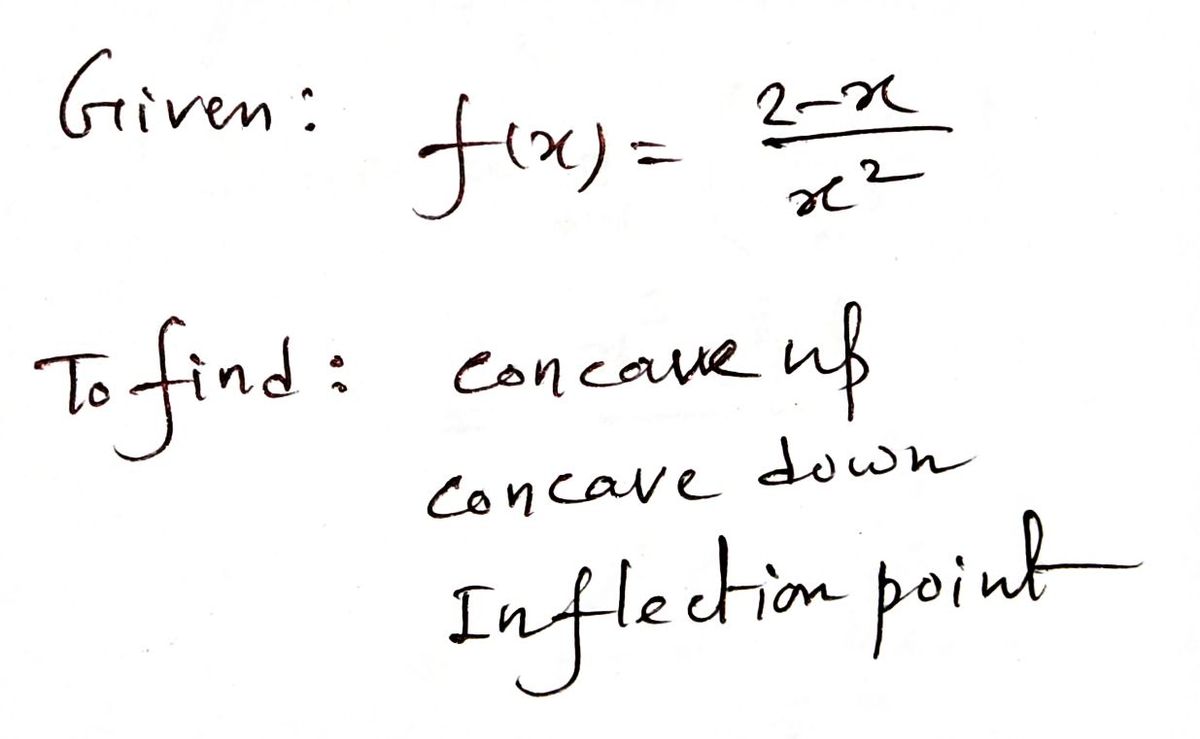 Given: f(x) = (2-x)/x²
To find: concave up
concave down
Inflection point